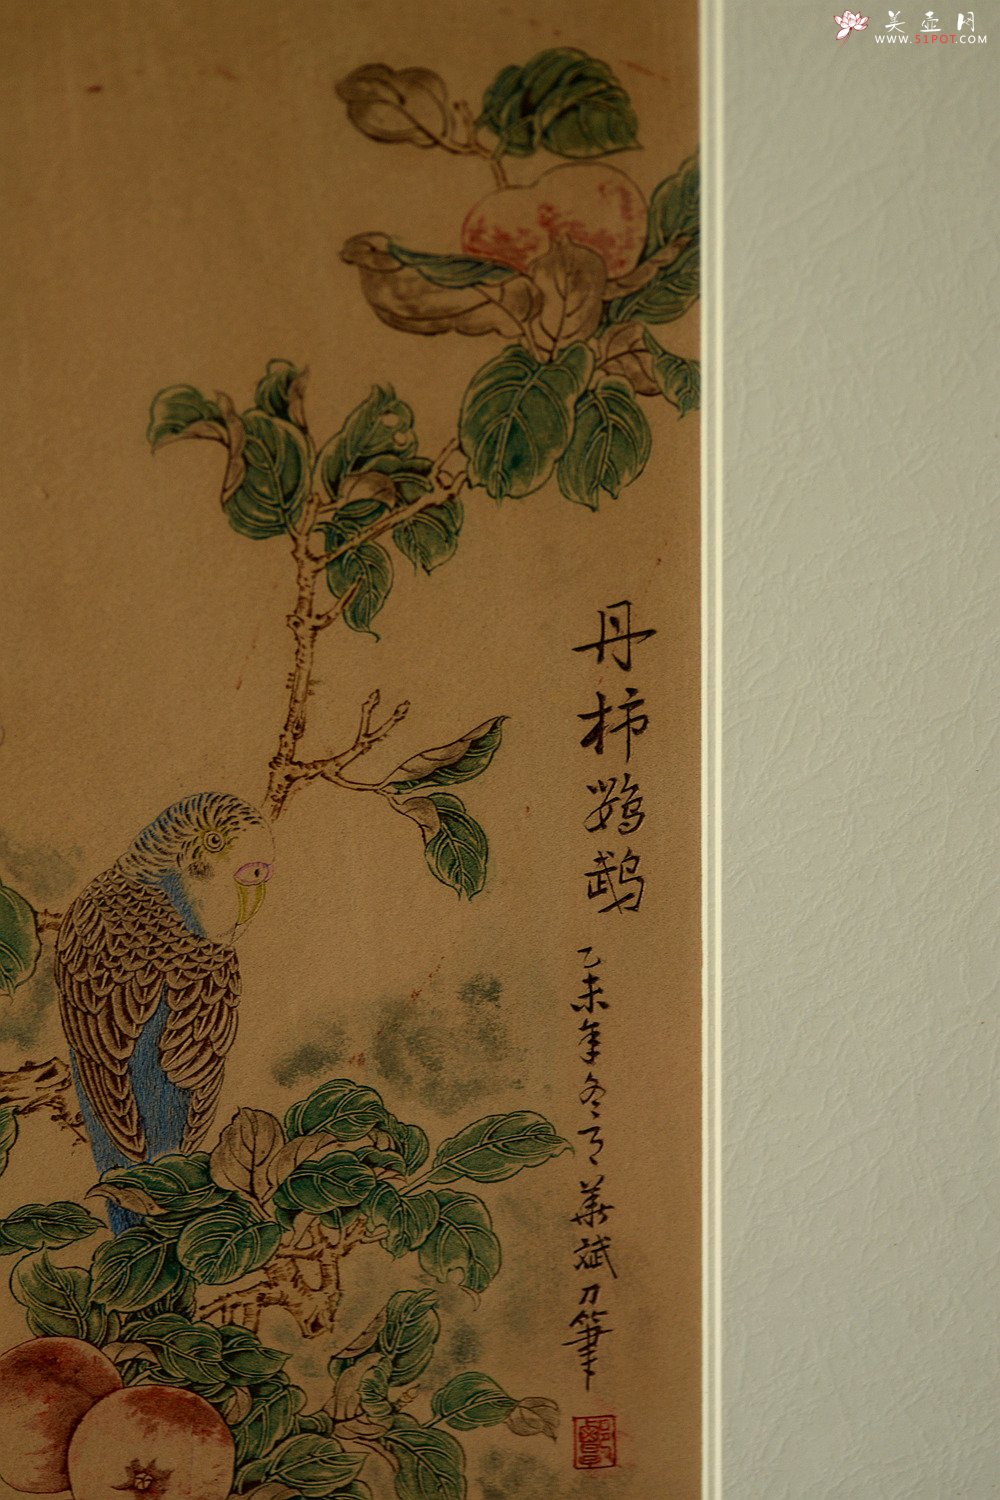 美壶月
WWW.51POT.COM
丹柿鹦鹉
乙未年冬月 斌刀筆